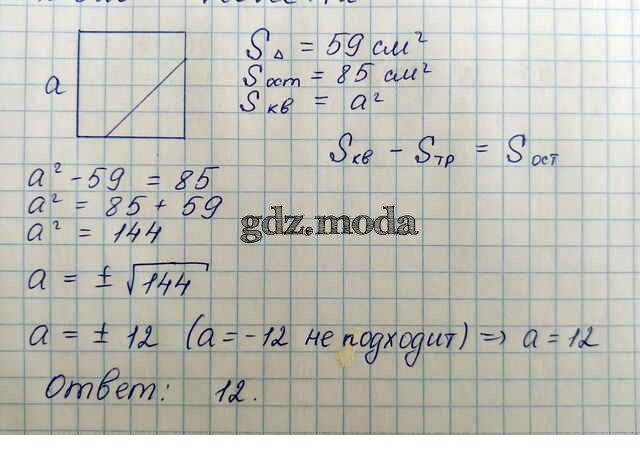 a
S△ = 59 см²
Sост = 85 см²
Sкв = a²
Sкв - Sтр = Sост
a² - 59 = 85
a² = 85 + 59
a² = 144
gdz.moda
a = ± √144
a = ± 12 (a = -12 не подходит) => a = 12
Ответ: 12.